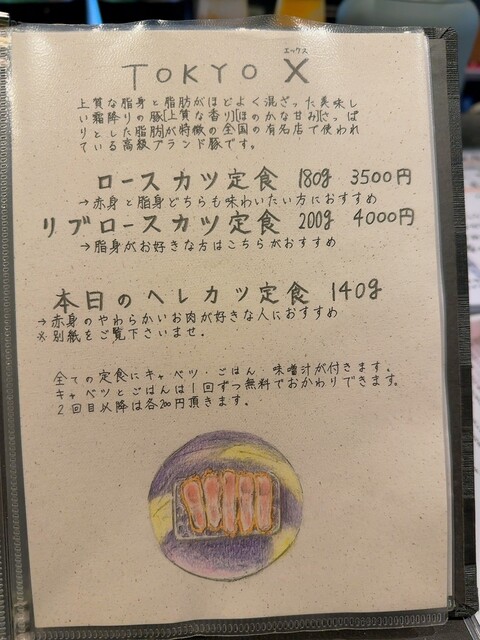 エックス
TOKYO X
上質な脂身と脂肪がほどよく混ざった美味し
い霜降りの豚[上質な香り][ほのかな甘み][さっぱ
りとした脂肪]が特徴の全国の有名店で使われ
ている高級ブランド豚です。
ロースカツ定食 180g 3500円
→赤身と脂身どちらも味わいたい方におすすめ
リブロースカツ定食 200g 4000円
→脂身がお好きな方はこちらがおすすめ
本日のヘレカツ定食 140g
→赤身のやわらかいお肉が好きな人におすすめ
※別紙をご覧下さいませ。
全ての定食にキャベツ・ごはん・味噌汁が付きます。
キャベツとごはんは1回ずつ無料でおかわりできます。
2回目以降は各200円頂きます。